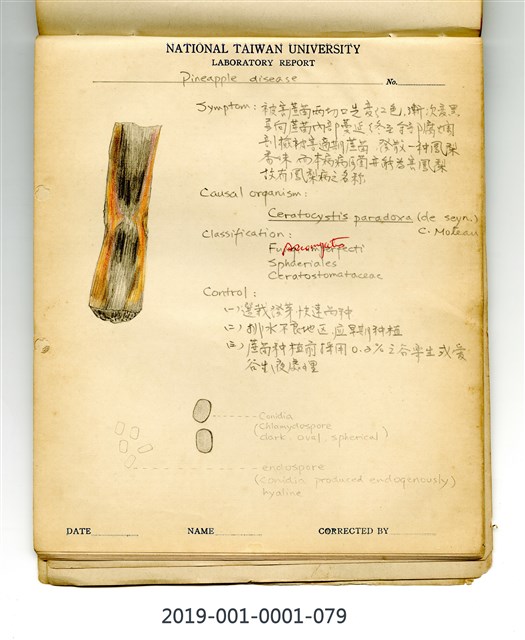 NATIONAL TAIWAN UNIVERSITY
LABORATORY REPORT
Pineapple disease No.
Symptom: 被害蔗苗兩切口先變紅色,漸次變黑
向蔗苗內部蔓延終至全部腐爛
剖檢被害適期蔗苗 發散一種鳳梨
香味
故有鳳梨病之名称
Causal organism:
Ceratocystis paradoxa (de seyn.)
C. Moreau
Classification:
Fu Ascomycetes imperfecti
Sphderiales
Ceratostomataceae
Control:
(一) 選我發芽快速品种
(二) 排水不良地区应早期种植
(三) 蔗苗种植前採用0.2%之谷樂生或愛
谷生液處理
Conidia
(Chlamydospore
dark. oval. spherical)
endospore
(conidia produced endogenously)
hyaline
DATE NAME CORRECTED BY
2019-001-0001-079